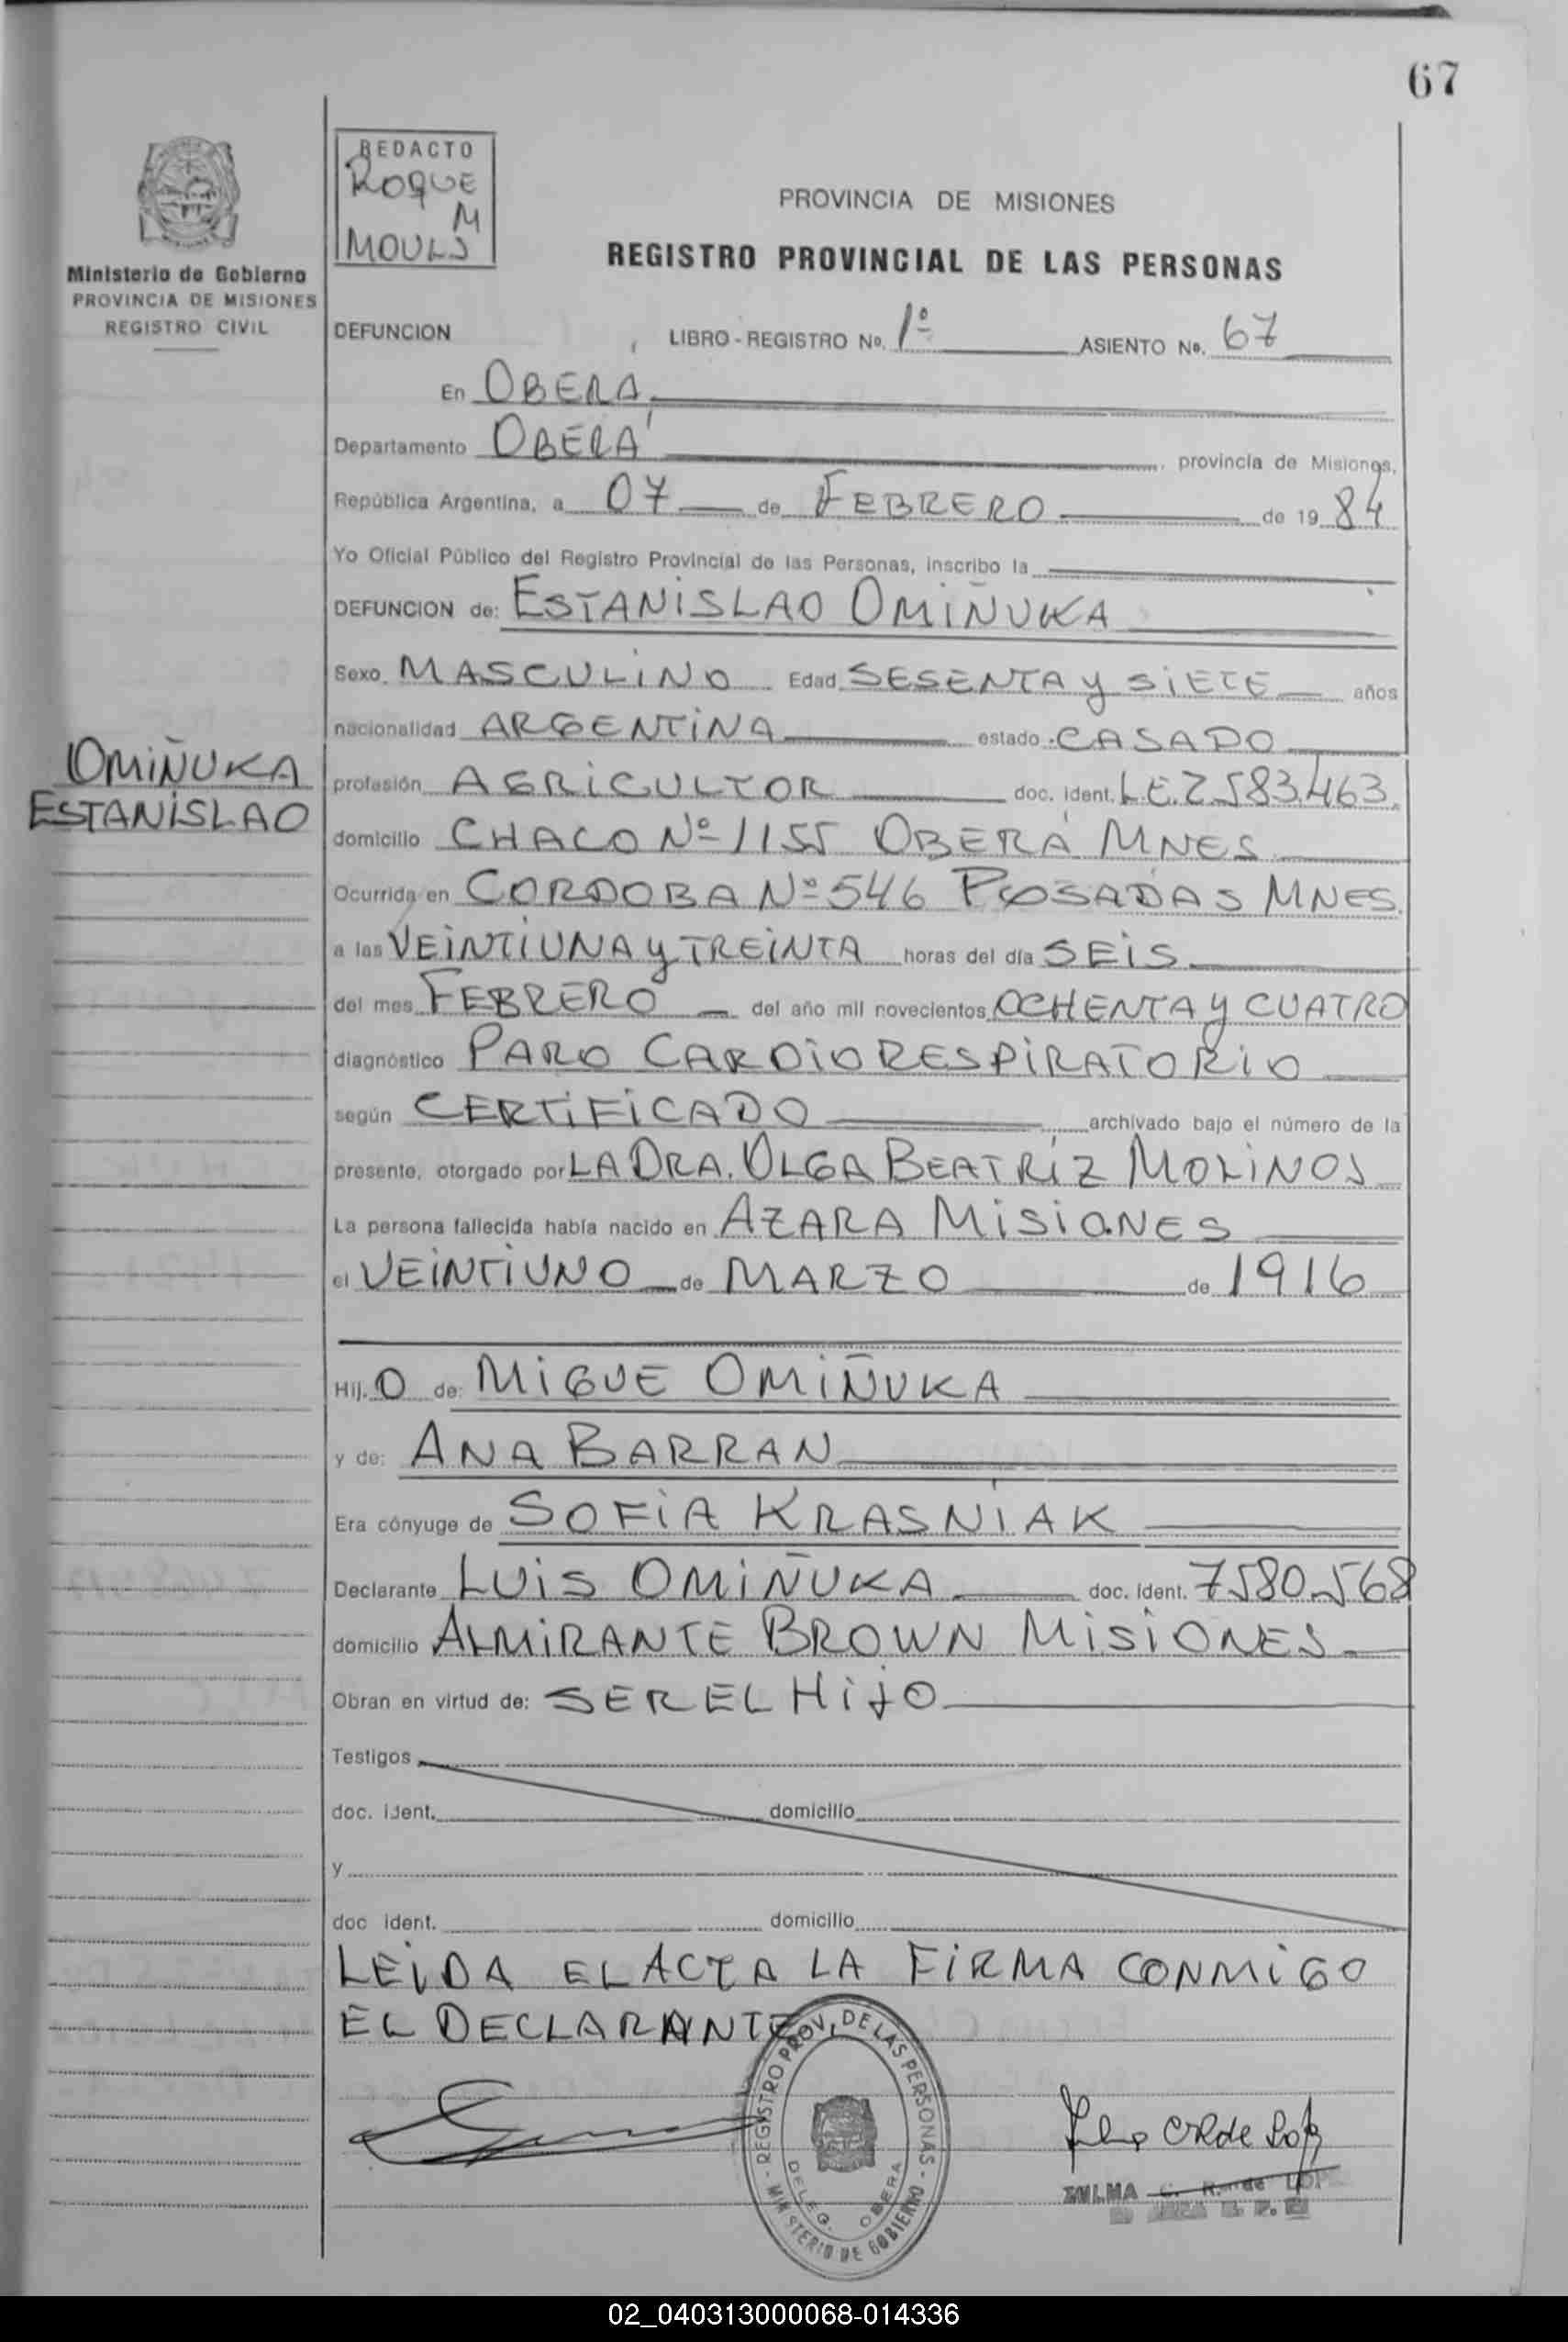 67
REDACTO
ROQUE
M
MOULS
Ministerio de Gobierno
PROVINCIA DE MISIONES
REGISTRO CIVIL
PROVINCIA DE MISIONES
REGISTRO PROVINCIAL DE LAS PERSONAS
DEFUNCION LIBRO - REGISTRO No. 1º ASIENTO No. 67
En OBERA
Departamento OBERA' provincia de Misiones,
República Argentina, a 07 de FEBRERO de 1984
Yo Oficial Público del Registro Provincial de las Personas, inscribo la
DEFUNCION de: ESTANISLAO OMIÑUKA
Sexo MASCULINO Edad SESENTA y SIETE años
nacionalidad ARGENTINA estado CASADO
OMIÑUKA
ESTANISLAO
profesión AGRICULTOR doc. ident. L.E. 2.583.463
domicilio CHACO Nº 1155 OBERÁ MNES
Ocurrida en CORDOBA Nº 546 POSADAS MNES.
a las VEINTIUNA y TREINTA horas del día SEIS
del mes FEBRERO del año mil novecientos OCHENTA y CUATRO
diagnóstico PARO CARDIORESPIRATORIO
según CERTIFICADO archivado bajo el número de la
presente, otorgado por LA DRA. OLGA BEATRIZ MOLINOS
La persona fallecida había nacido en AZARA MISIONES
el VEINTIUNO de MARZO de 1916
Hij.O de: MIGUE OMIÑUKA
y de: ANA BARRAN
Era cónyuge de SOFIA KRASNIAK
Declarante LUIS OMIÑUKA doc. ident. 7580.568
domicilio ALMIRANTE BROWN MISIONES
Obran en virtud de: SER EL HIJO
Testigos
doc. ident. domicilio
y
doc ident. domicilio
LEIDA EL ACTA LA FIRMA CONMIGO
EL DECLARANTE
REGISTRO PROV. DE LAS PERSONAS - MINISTERIO DE GOBIERNO -
DELEG. OBERA
ZULMA C. R. de LOPE
02_040313000068-014336